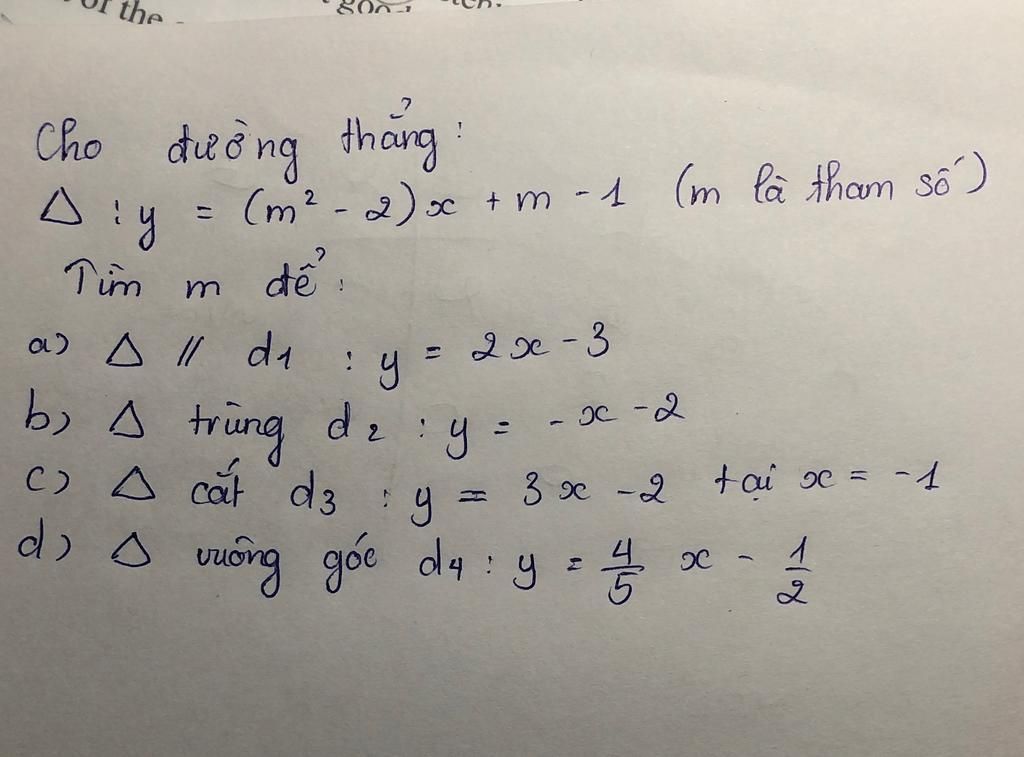 of the
Cho đường thẳng:
Δ : y = (m² - 2)x + m - 1 (m là tham số)
Tìm m để:
a) Δ // d1 : y = 2x - 3
b) Δ trùng d2 : y = -x - 2
c) Δ cắt d3 : y = 3x - 2 tại x = -1
d) Δ vuông góc d4 : y = 4/5 x - 1/2